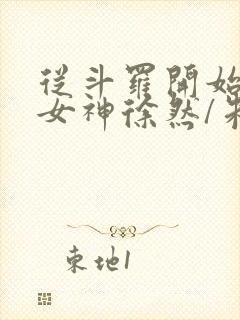 從斗羅開始
女神徐然/朱
東地1